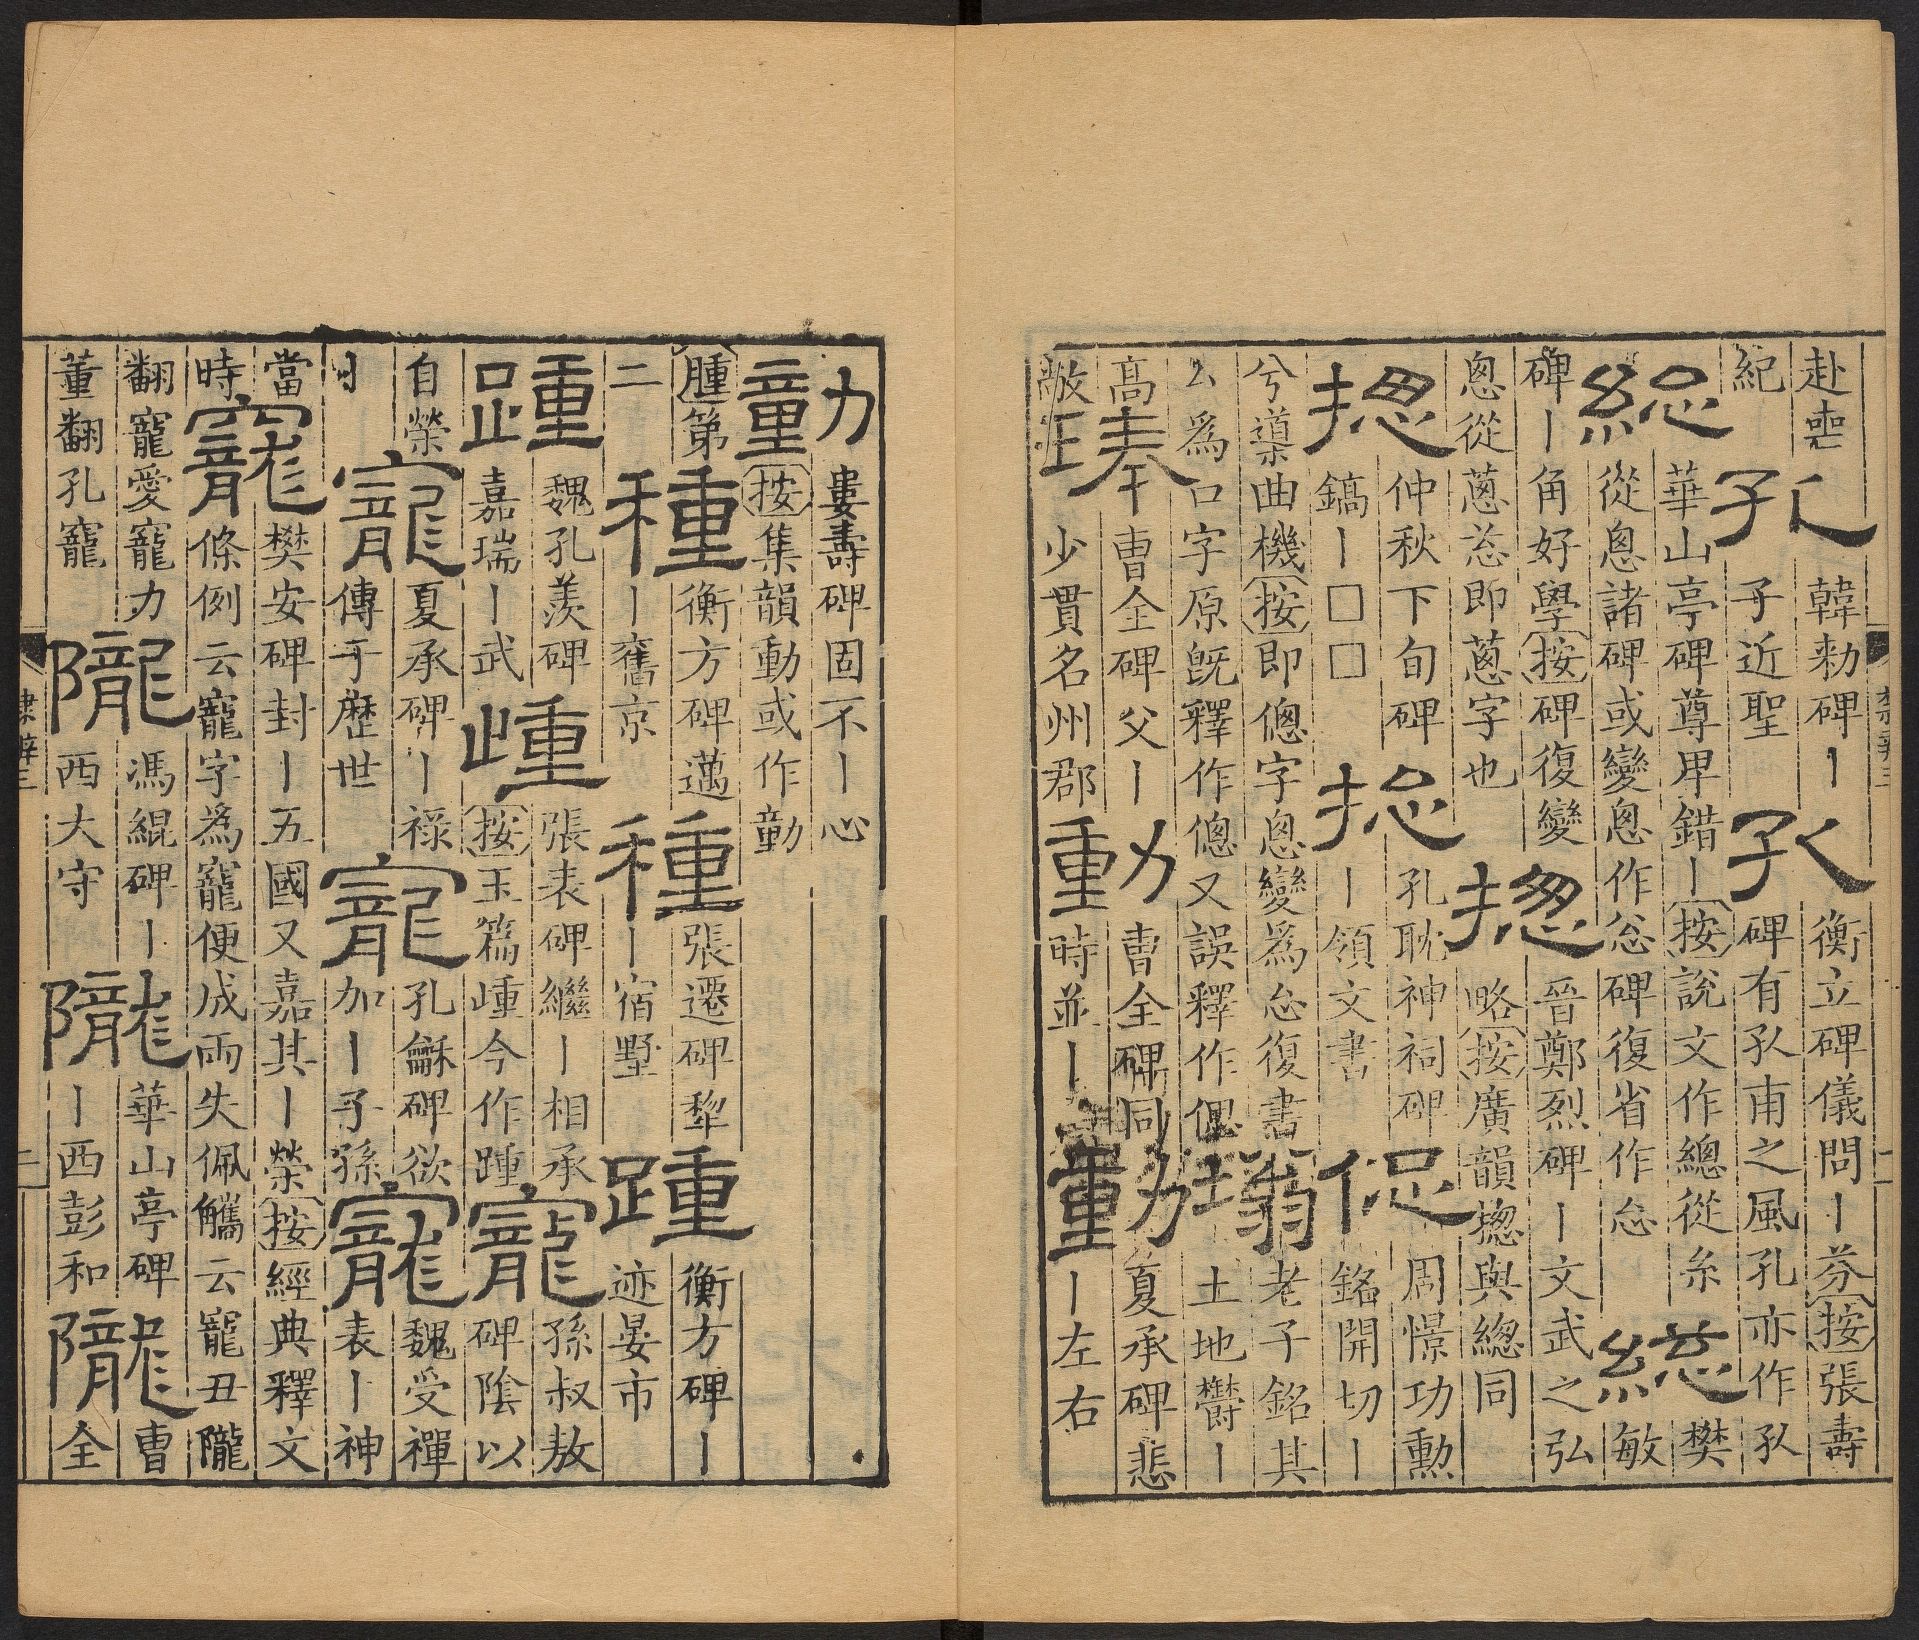 赴喪紀孔韓勑碑〡子近聖孔衡立碑儀問〡芬按張壽碑有孔甫之風孔亦作孔
総華山亭碑尊卑錯〡按說文作總從糸從悤諸碑或變悤作忩碑復省作㤀総樊敏
碑〡角好學按碑復變悤從蔥蔥即蔥字也摠晉鄭烈碑〡文武之弘略按廣韻摠與總同
揔仲秋下旬碑鎬〡□□揔孔耽神祠碑〡領文書偬周憬功勲銘開切〡
兮導渠曲機按即傯字悤變為㤀復書厶為口字原旣釋作傯又誤釋作偲塕老子銘其土地鬱〡
高敞琫曹全碑父〡少貫名州郡動曹全碑同時並〡勭夏承碑悲〡左右
隸辨三
二
勭婁壽碑固不〡心按集韻動或作勭
腫第二種衡方碑邁〡舊京種張遷碑犂〡宿墅踵衡方碑〡迹晏市
踵魏孔羨碑嘉瑞〡武歱張表碑繼〡相承按玉篇歱今作踵寵孫叔敖碑陰以
自榮寵夏承碑〡祿傳于歷世寵孔龢碑欲加〡子孫寵魏受禪表〡神
當時竉樊安碑封〡五國又嘉其〡榮按經典釋文條例云寵字為竉便成兩失佩觿云寵丑隴
翻寵愛竉力董翻孔竉隴馮緄碑〡西大守隴華山亭碑〡西彭和隴曹全